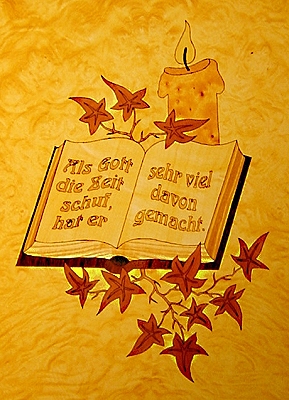 Als Gott
die Zeit
schuf,
hat er
sehr viel
davon
gemacht.